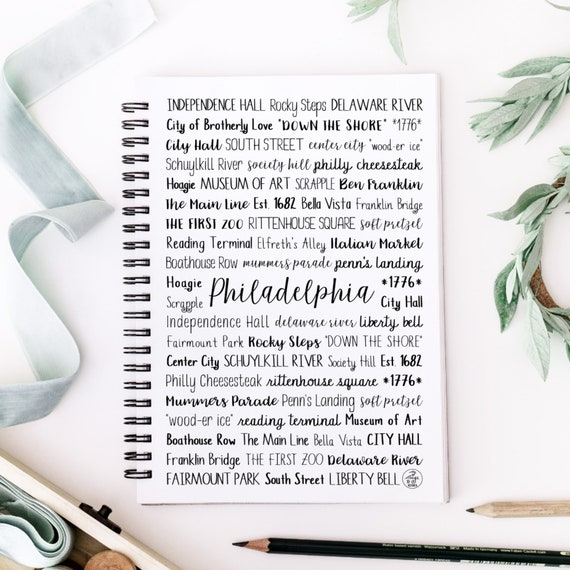 INDEPENDENCE HALL Rocky Steps DELAWARE RIVER
City of Brotherly Love "DOWN THE SHORE" *1776*
City Hall SOUTH STREET center city "wood-er ice"
Schuylkill River society hill philly cheesesteak
Hoagie MUSEUM OF ART SCRAPPLE Ben Franklin
The Main Line Est. 1682 Bella Vista Franklin Bridge
THE FIRST ZOO RITTENHOUSE SQUARE soft pretzel
Reading Terminal Elfreth's Alley Italian Market
Boathouse Row mummers parade penn's landing
Hoagie Philadelphia *1776*
Scrapple City Hall
Independence Hall delaware river liberty bell
Fairmount Park Rocky Steps "DOWN THE SHORE"
Center City SCHUYLKILL RIVER Society Hill Est. 1682
Philly Cheesesteak rittenhouse square *1776*
Mummers Parade Penn's Landing soft pretzel
"wood-er ice" reading terminal Museum of Art
Boathouse Row The Main Line Bella Vista CITY HALL
Franklin Bridge THE FIRST ZOO Delaware River
FAIRMOUNT PARK South Street LIBERTY BELL